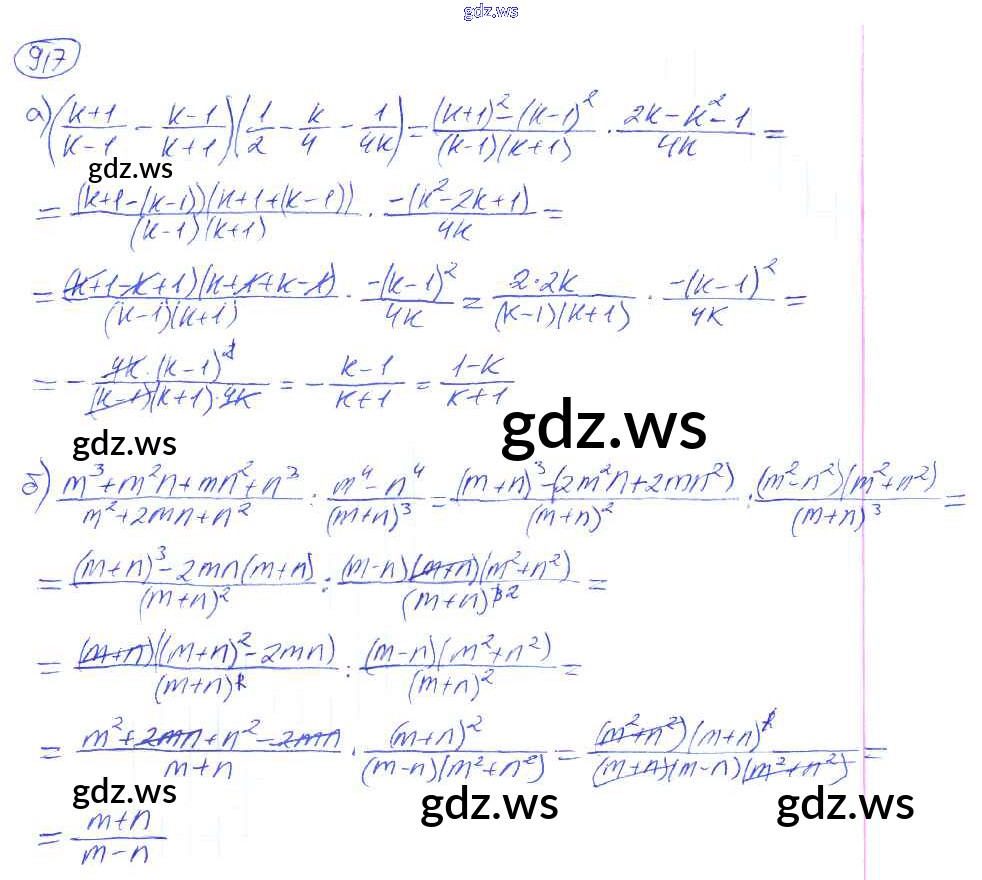 gdz.ws
917
а) ((k+1)/(k-1) - (k-1)/(k+1)) (1/2 - k/4 - 1/(4k)) = ((k+1)² - (k-1)²)/((k-1)(k+1)) · (2k - k² - 1)/(4k) =
gdz.ws
= ((k+1-(k-1))(k+1+(k-1)))/((k-1)(k+1)) · (-(k²-2k+1))/(4k) =
= ((k+1-k+1)(k+1+k-1))/((k-1)(k+1)) · (-(k-1)²)/(4k) = (2·2k)/((k-1)(k+1)) · (-(k-1)²)/(4k) =
= - (4k·(k-1)²)/((k-1)(k+1)·4k) = - (k-1)/(k+1) = (1-k)/(k+1)
gdz.ws
gdz.ws
б) (m³+m²n+mn²+n³)/(m²+2mn+n²) : (m⁴-n⁴)/(m+n)³ = ((m+n)³-(2m²n+2mn²))/(m+n)² : ((m²-n²)(m²+n²))/(m+n)³ =
= ((m+n)³-2mn(m+n))/(m+n)² : ((m-n)(m+n)(m²+n²))/(m+n)³² =
= ((m+n)((m+n)²-2mn))/(m+n)² : ((m-n)(m²+n²))/(m+n)² =
= (m²+2mn+n²-2mn)/(m+n) · (m+n)²/((m-n)(m²+n²)) = ((m²+n²)(m+n)²)/((m+n)(m-n)(m²+n²)) =
gdz.ws gdz.ws gdz.ws
= (m+n)/(m-n)